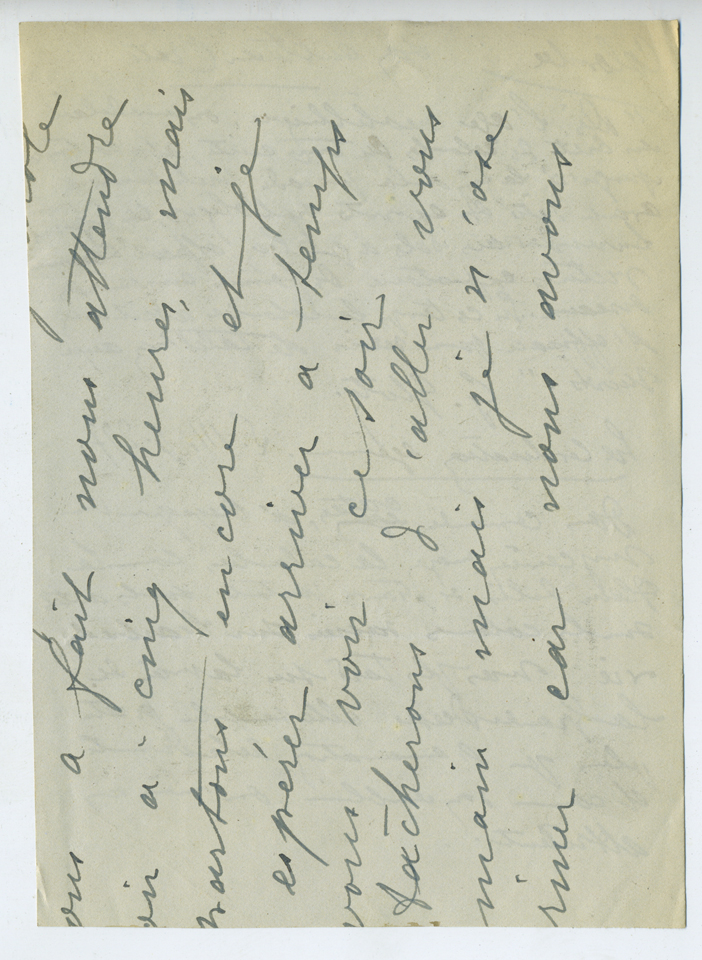 ous a fait nous attendre
à cinq heures, mais
partons encore et je
espérer arriver a temps
vous voir ce soir
tâcherons d'aller vous
main mais je n'ose
rmer car nous avons